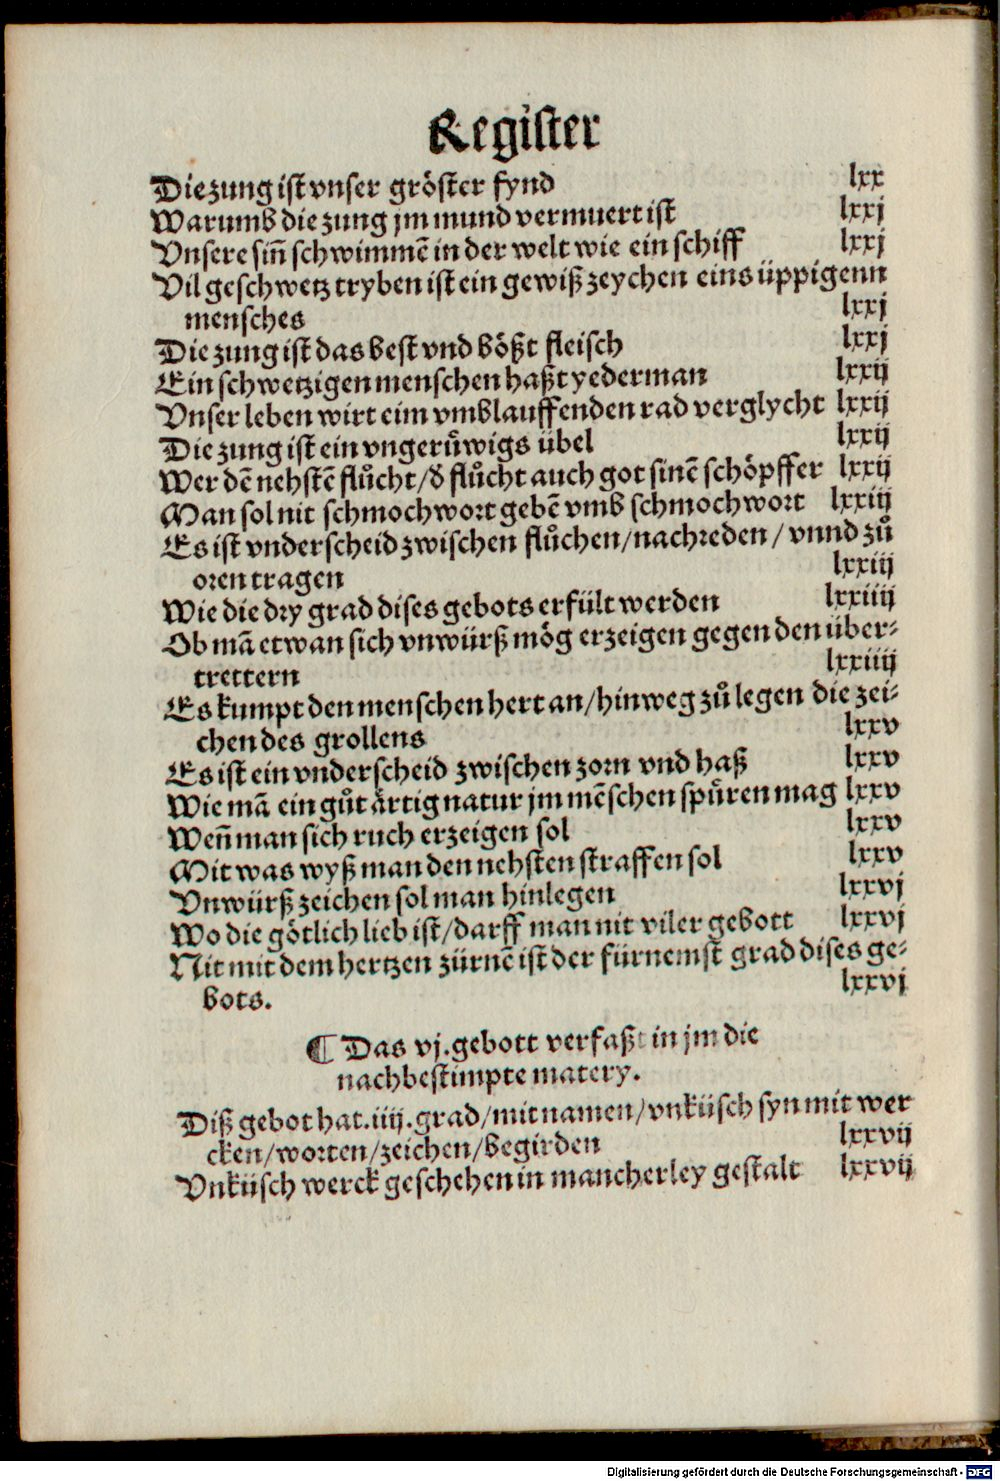 Register
Die zung ist vnser gröster fynd lxx
Warumb die zung jm mund vermuert ist lxxj
Vnsere siñ schwimmẽ in der welt wie ein schiff lxxj
Vil geschwetz tryben ist ein gewiß zeychen eins üppigenn
mensches lxxj
Die zung ist das best vnd bößt fleisch lxxj
Ein schwetzigen menschen haßt yederman lxxij
Vnser leben wirt eim vmblauffenden rad verglycht lxxij
Die zung ist ein vngerůwigs übel lxxij
Wer dẽ nehstẽ flůcht/d̕ flůcht auch got sinẽ schöpffer lxxij
Man sol nit schmochwort gebẽ vmb schmochwort lxxiij
Es ist vnderscheid zwischen flůchen/nachreden/ vnnd zů
oren tragen lxxiij
Wie die dry grad dises gebots erfült werden lxxiiij
Ob mã etwan sich vnwürß mög erzeigen gegen den über⸗
trettern lxxiiij
Es kumpt den menschen hert an/hinweg zů legen die zei⸗
chen des grollens lxxv
Es ist ein vnderscheid zwischen zorn vnd haß lxxv
Wie mã ein gůt ärtig natur jm mẽschen spüren mag lxxv
Weñ man sich ruch erzeigen sol lxxv
Mit was wyß man den nehsten straffen sol lxxv
Vnwürß zeichen sol man hinlegen lxxvj
Wo die götlich lieb ist/darff man nit viler gebott lxxvj
Nit mit dem hertzen zürnẽ ist der fürnemst grad dises ge⸗
bots. lxxvj
¶ Das vj.gebott verfaßt in jm die
nachbestimpte matery.
Diß gebot hat.iiij.grad/mit namen/vnküsch syn mit wer
cken/worten/zeichen/begirden lxxvij
Vnküsch werck geschehen in mancherley gestalt lxxvij
Digitalisierung gefördert durch die Deutsche Forschungsgemeinschaft - DFG